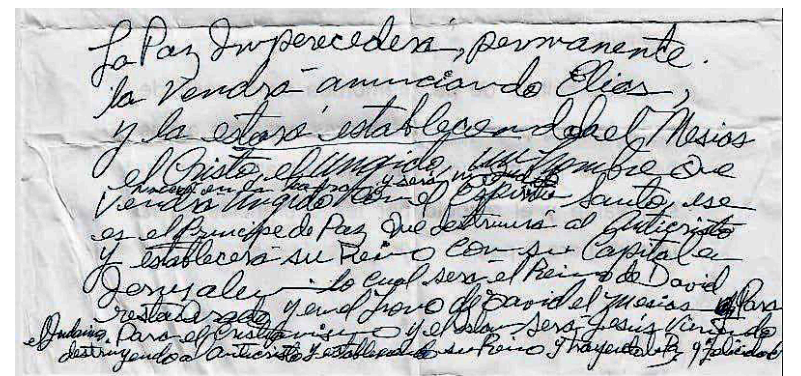 La Paz Imperecedera, permanente.
la Vendrá anunciando Elías,
y la estará estableciendo el Mesías
el Cristo, el Ungido, un hombre que
y será ungido
Vendrá Ungido con el Espíritu Santo, ese
es el Príncipe de Paz que destruirá al Anticristo
y establecerá su Reino con su Capital en
Jerusalen lo cual será el Reino de David
restaurado y en el Trono de David el Mesías Para
el Judaísmo. Para el Cristianismo y el Islam será Jesús Viniendo
destruyendo a Anticristo y estableciendo su Reino y trayendo la Paz y felicidad